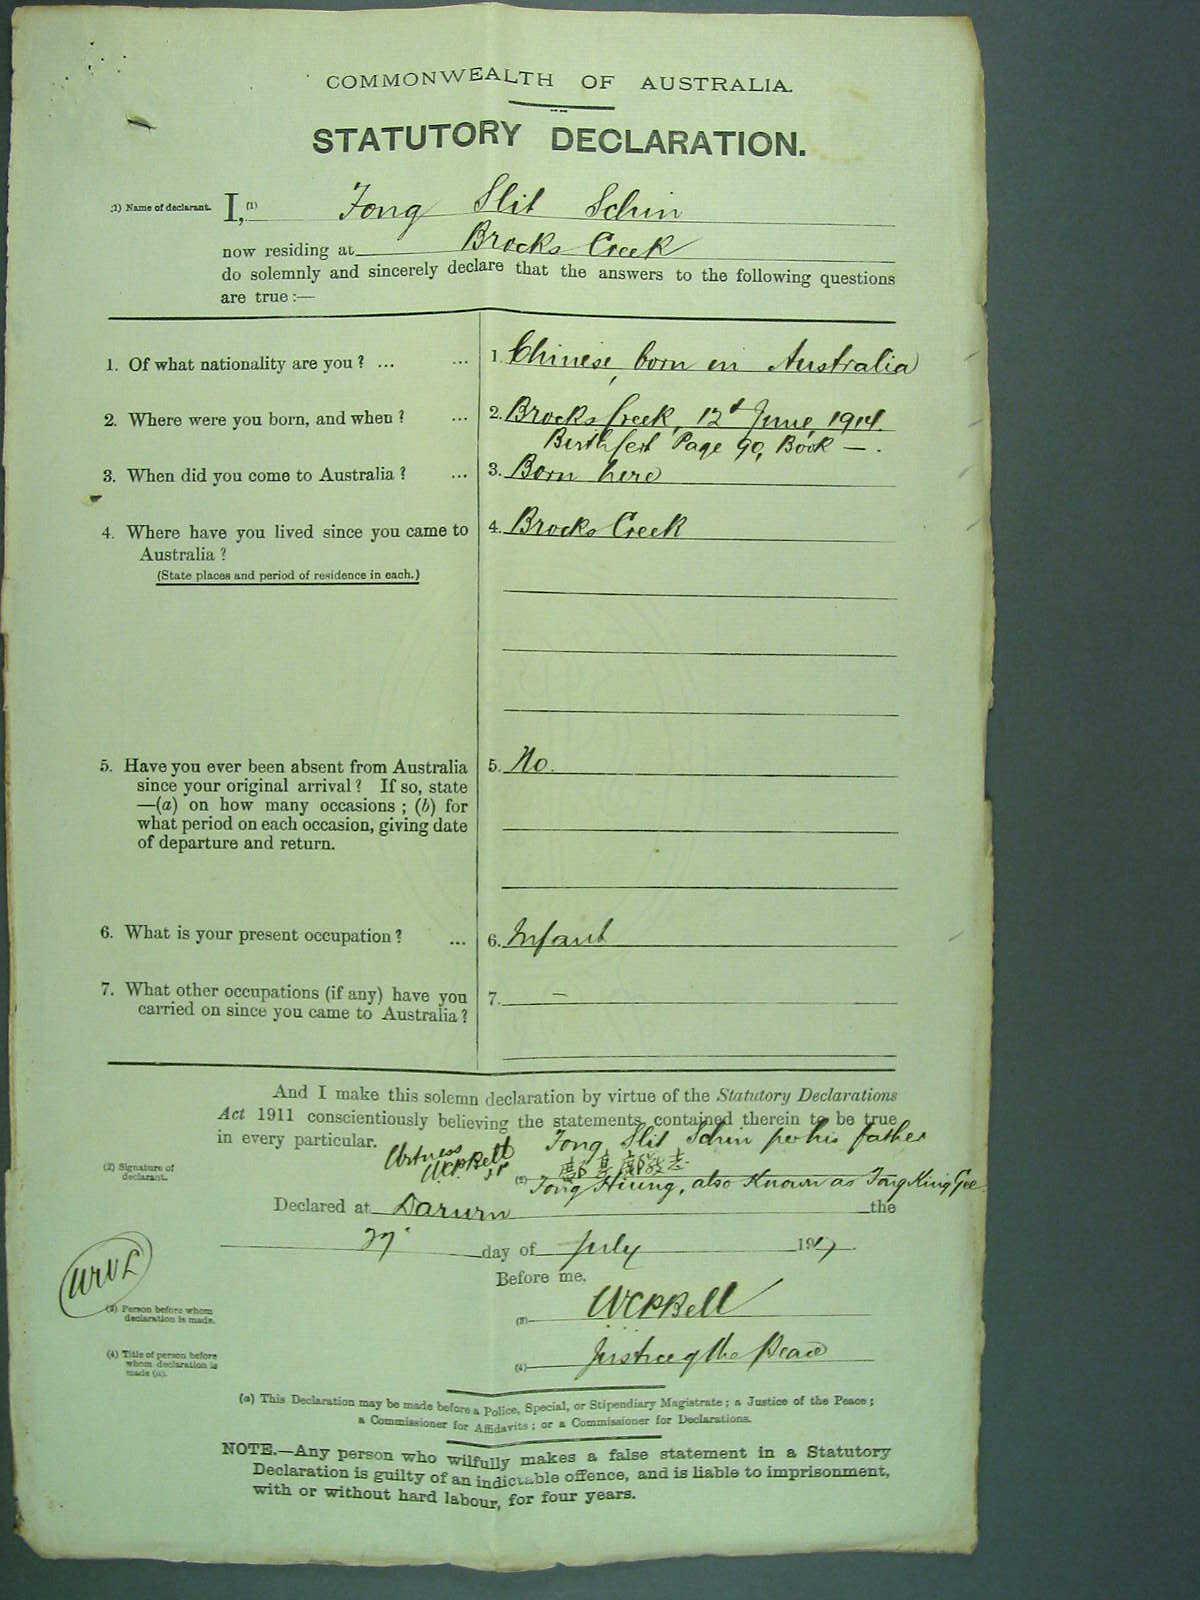 COMMONWEALTH OF AUSTRALIA.
STATUTORY DECLARATION.
(1) Name of declarant. I, (1) Fong Slit Schin
now residing at Brocks Creek
do solemnly and sincerely declare that the answers to the following questions
are true :—
1. Of what nationality are you ? ... ... 1. Chinese, born in Australia
2. Where were you born, and when ? ... 2. Brocks Creek, 12th June, 1914.
Birth Cert Page 90, Book — .
3. When did you come to Australia ? ... 3. Born here
4. Where have you lived since you came to 4. Brocks Creek
Australia ?
(State places and period of residence in each.)
5. Have you ever been absent from Australia 5. No.
since your original arrival ? If so, state
—(a) on how many occasions ; (b) for
what period on each occasion, giving date
of departure and return.
6. What is your present occupation ? ... 6. Infant
7. What other occupations (if any) have you 7. —
carried on since you came to Australia ?
And I make this solemn declaration by virtue of the Statutory Declarations
Act 1911 conscientiously believing the statements contained therein to be true
in every particular.
Fong Slit Schin per his father
Witness
WCPBell
JP
(2) Signature of
declarant.
(2) Fong Hiung, also Known as Fong King Gee
Declared at Darwin the
27 day of July 1917.
Before me,
(3) Person before whom
declaration is made.
(3) WCPBell
(4) Title of person before
whom declaration is
made (a).
(4) Justice of the Peace
(a) This Declaration may be made before a Police, Special, or Stipendiary Magistrate ; a Justice of the Peace ;
a Commissioner for Affidavits ; or a Commissioner for Declarations.
NOTE.—Any person who wilfully makes a false statement in a Statutory
Declaration is guilty of an indictable offence, and is liable to imprisonment,
with or without hard labour, for four years.